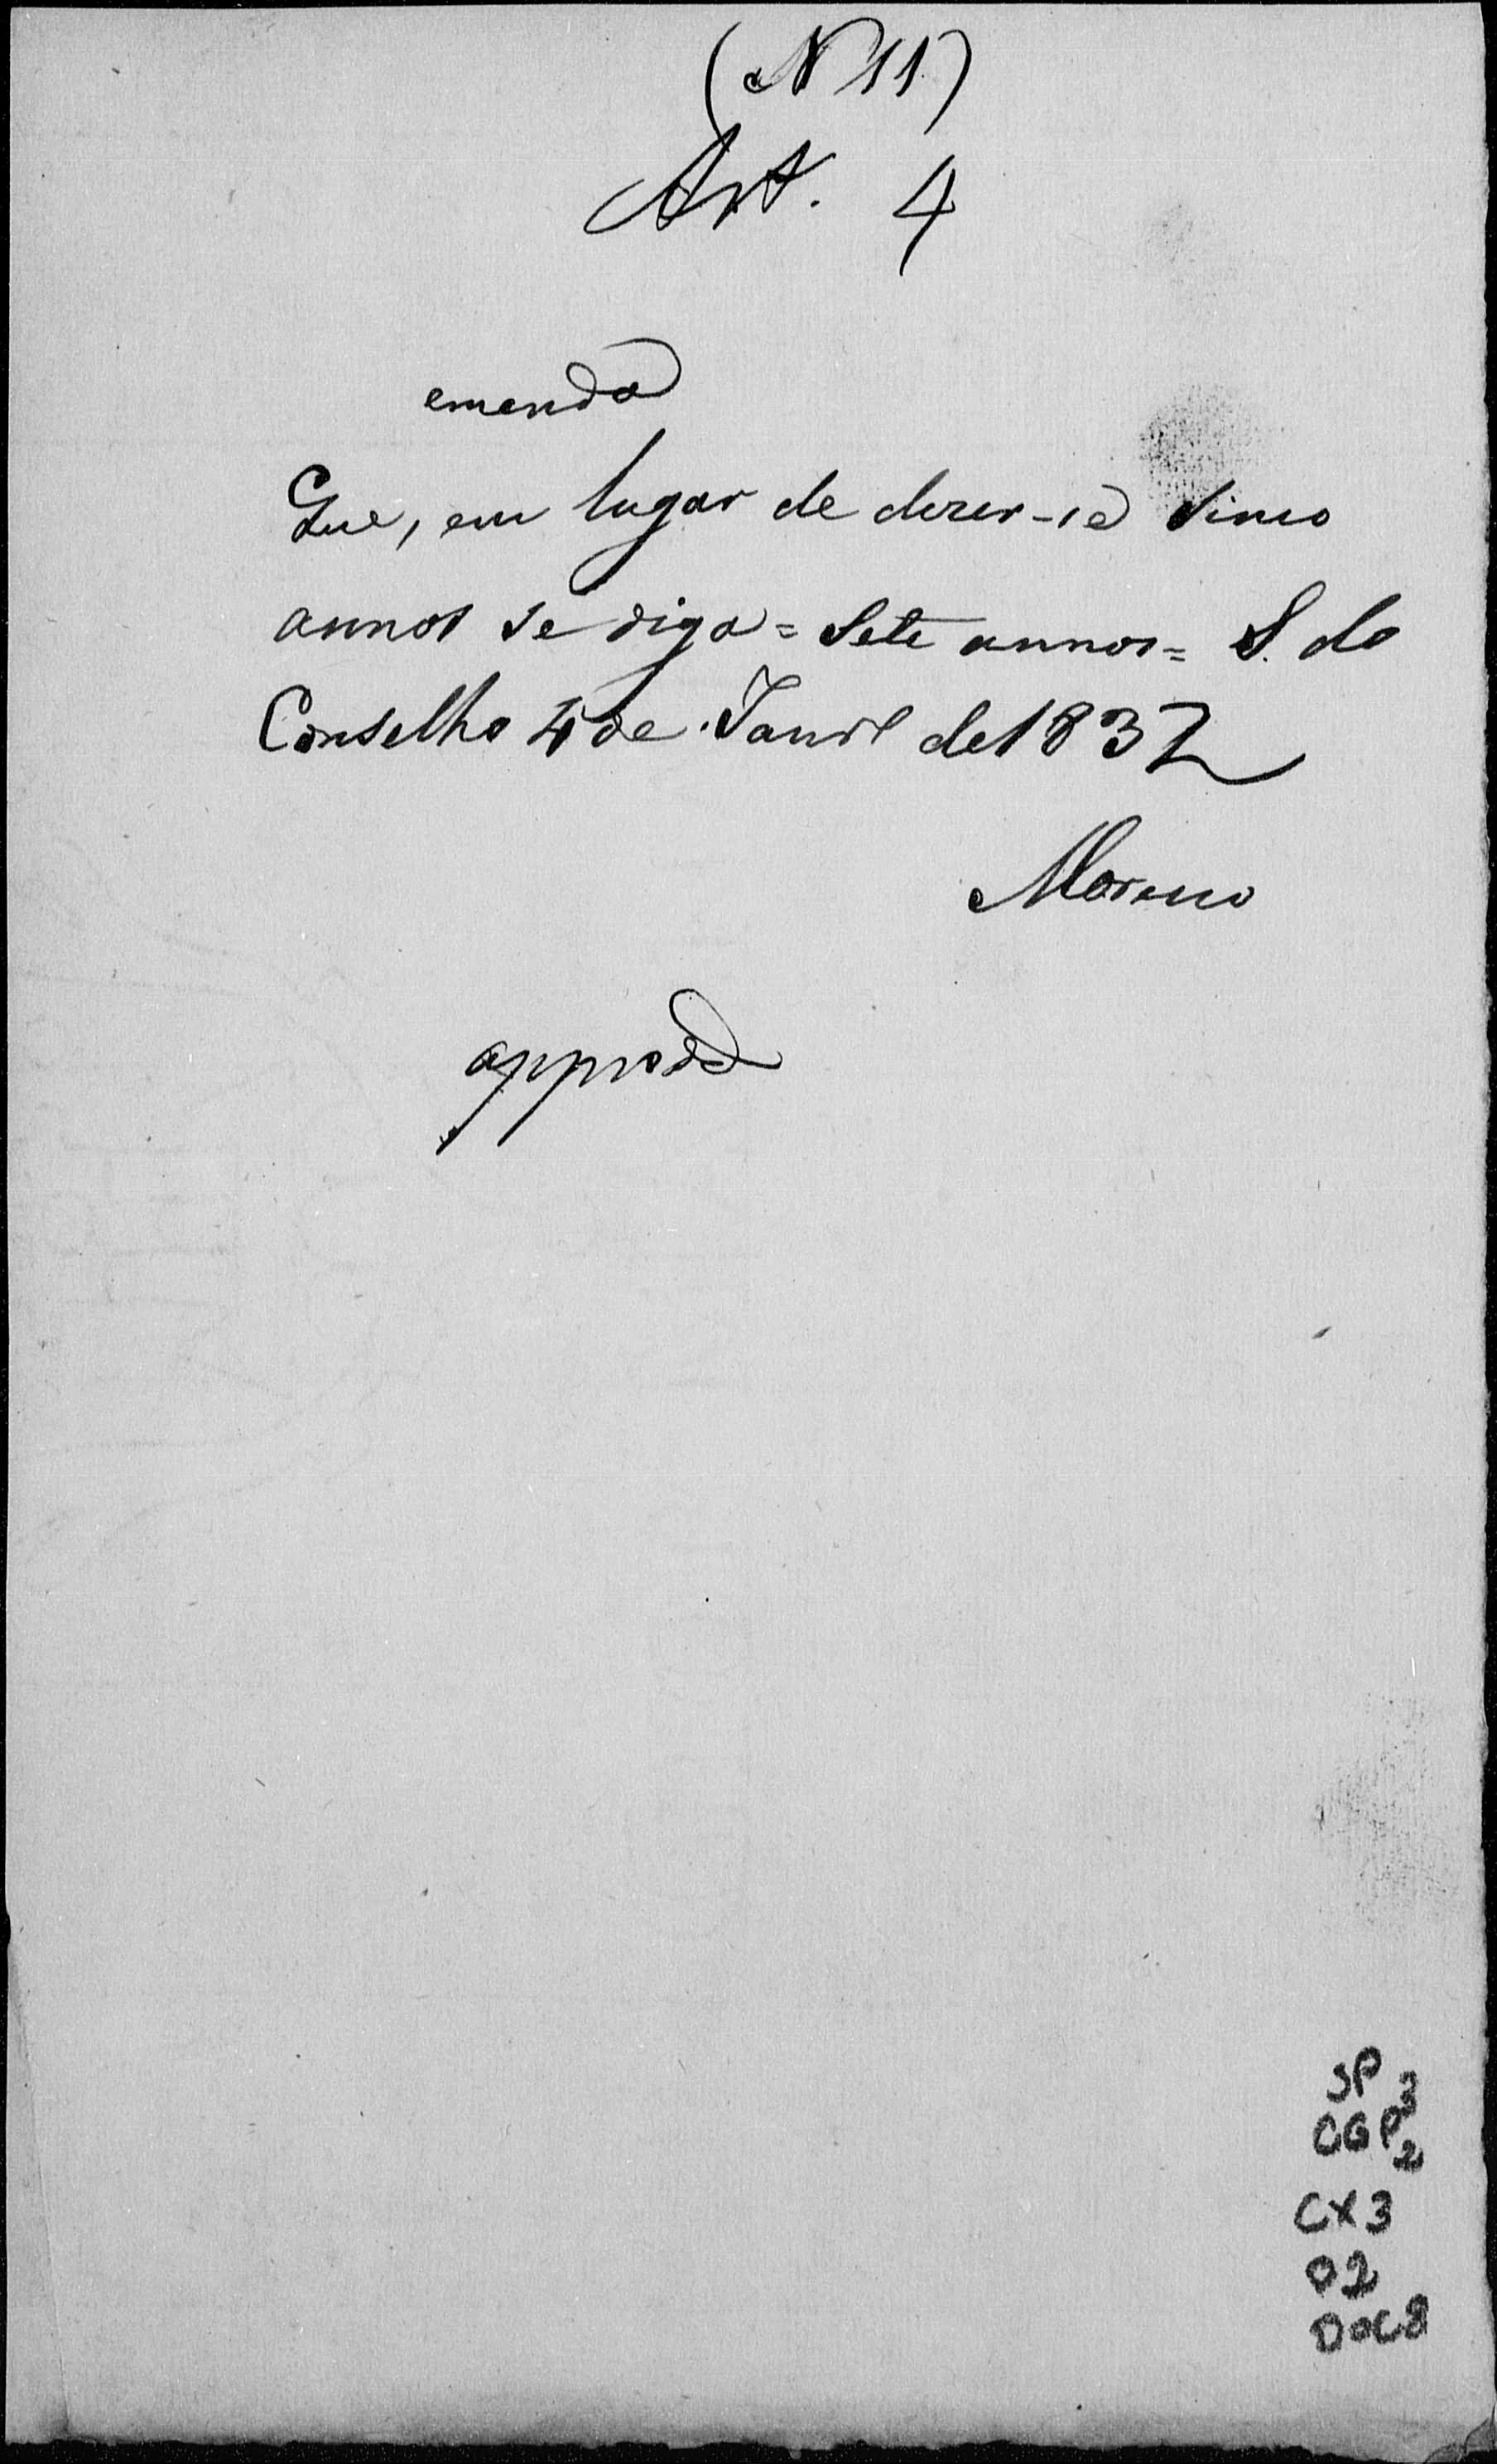 (N 11)
Art. 4
emenda
Que, em lugar de dizer-se sinco
annos se diga = Sete annos = S. do
Conselho 4 de Janrº de 1832
Moreno
approvd
SP
CGP 3
2
CX3
02
DOC 8